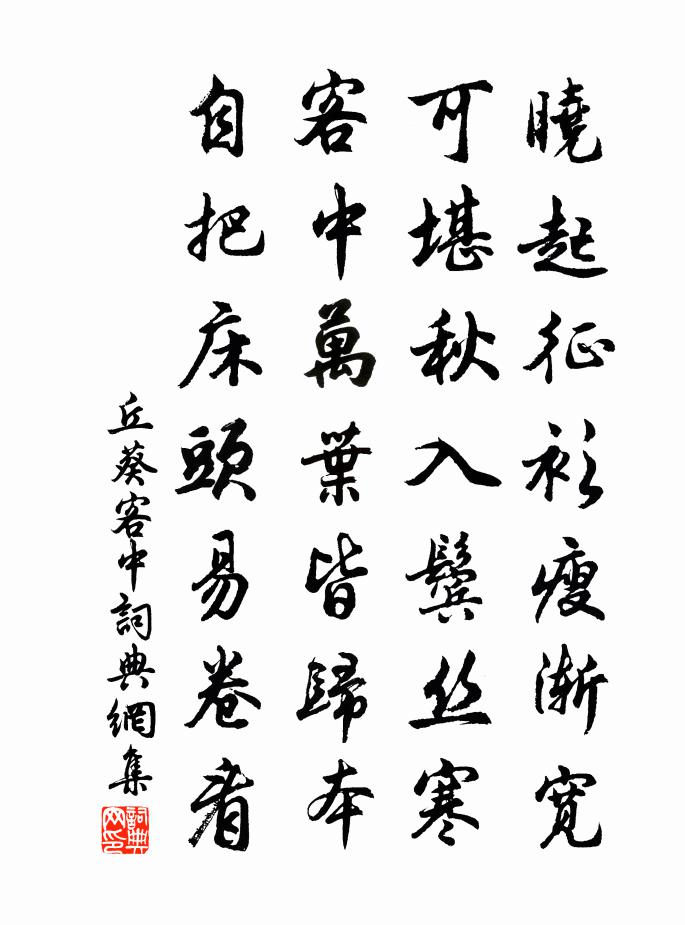 曉起征衫瘦漸寬
可堪秋入鬢丝寒
客中萬葉皆歸本
自把床頭易卷看
丘葵客中詞典網集
詞典网印